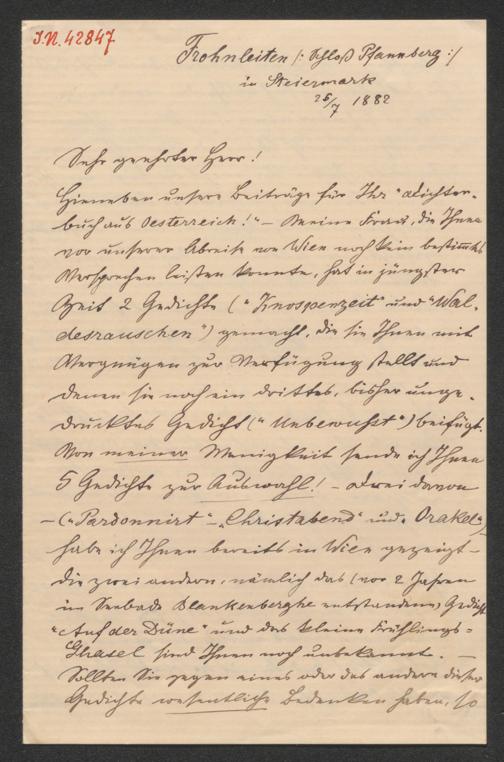 I.N. 42847
Frohnleiten /: Schloß Pfannberg :/
in Steiermark
25/7 1882
Sehr geehrter Herr!
Hieneben unsere Beiträge für Ihr "Dichter-
buch aus Oesterreich!" – Meine Frau, die Ihnen
vor unserer Abreise von Wien noch kein bestimmtes
Versprechen leisten konnte, hat in jüngster
Zeit 2 Gedichte ("Knospenzeit" und "Wal-
desrauschen") gemacht, die sie Ihnen mit
Vergnügen zur Verfügung stellt und
denen sie noch ein drittes, bisher unge-
drucktes Gedicht ("Unbewußt") beifügt.
Von meiner Wenigkeit sende ich Ihnen
5 Gedichte zur Auswahl! – Drei davon
– ("Pardonnirt" – "Christabend" und "Orakel")
habe ich Ihnen bereits in Wien gezeigt –
die zwei andern, nämlich das (vor 2 Jahren
im Seebade Blankenberghe entstandene) Gedicht
"Auf der Düne" und das kleine Frühlings-
Ghasel sind Ihnen noch unbekannt. –
Sollten Sie gegen eines oder das andere dieser
Gedichte wesentliche Bedenken haben, so